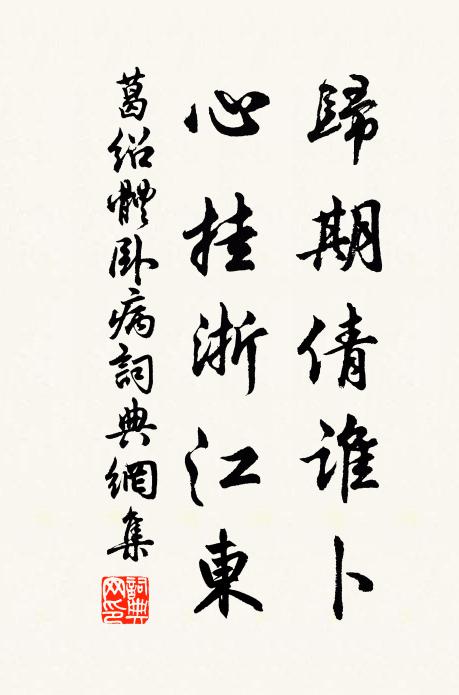 歸期倩誰卜
心挂浙江東
葛紹體臥病詞典網集
詞典網印